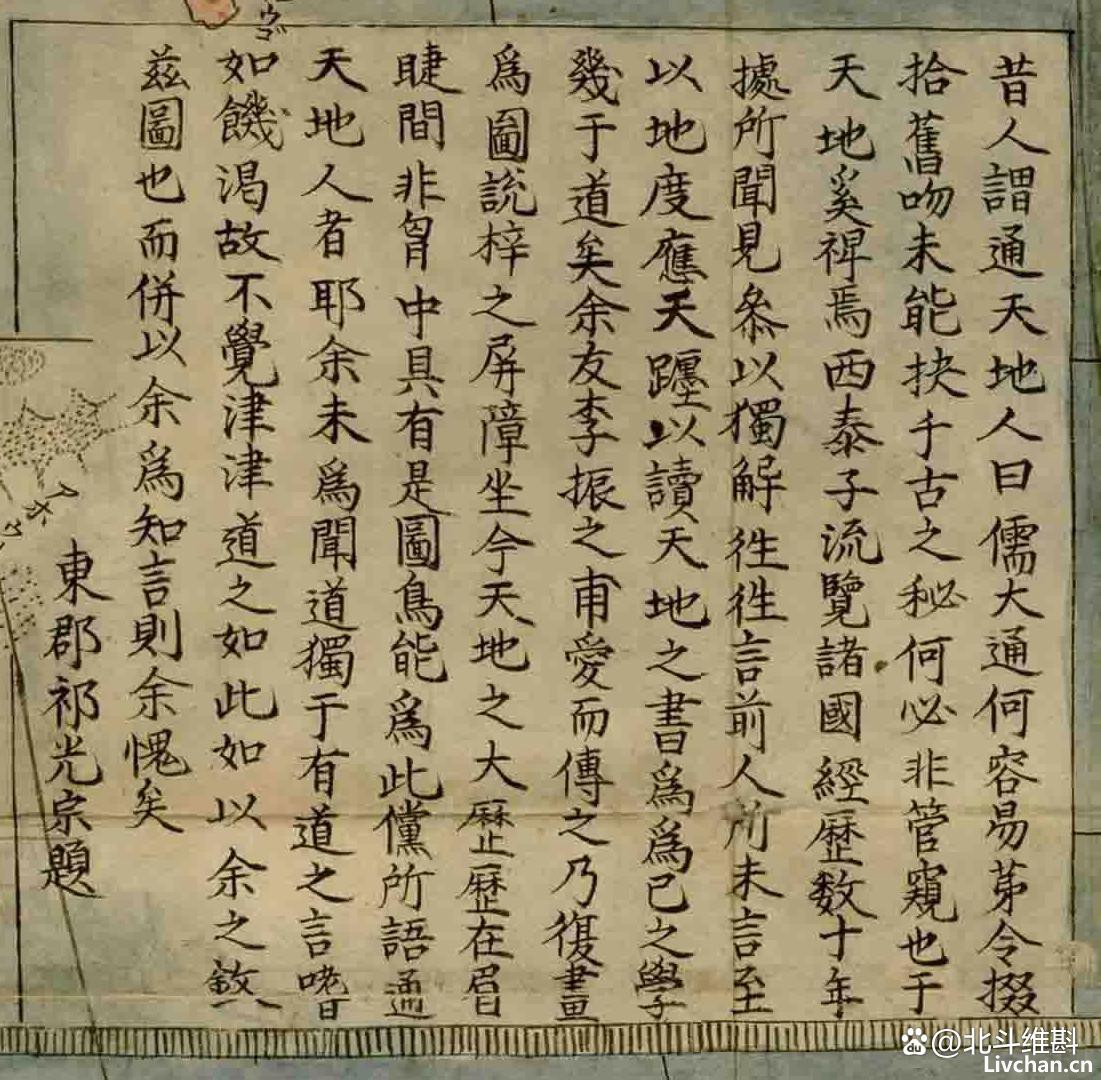 昔人謂通天地人曰儒大通何容易苐令掇
拾舊吻未能抉千古之秘何必非管窺也于
天地奚裨焉西泰子流覽諸國經歷数十年
據所聞見叅以獨解徃徃言前人所未言至
以地度應天躔以讀天地之書爲爲己之學
幾于道矣余友李振之甫愛而傳之乃復畫
爲圖說梓之屏障坐令天地之大歷歷在眉
睫間非胷中具有是圖烏能爲此儻所語通
天地人者耶余未爲聞道獨于有道之言嗜
如饑渴故不覺津津道之如此如以余之敘
茲圖也而併以余爲知言則余愧矣
東郡祁光宗題
@北斗维斟
Livchan.cn